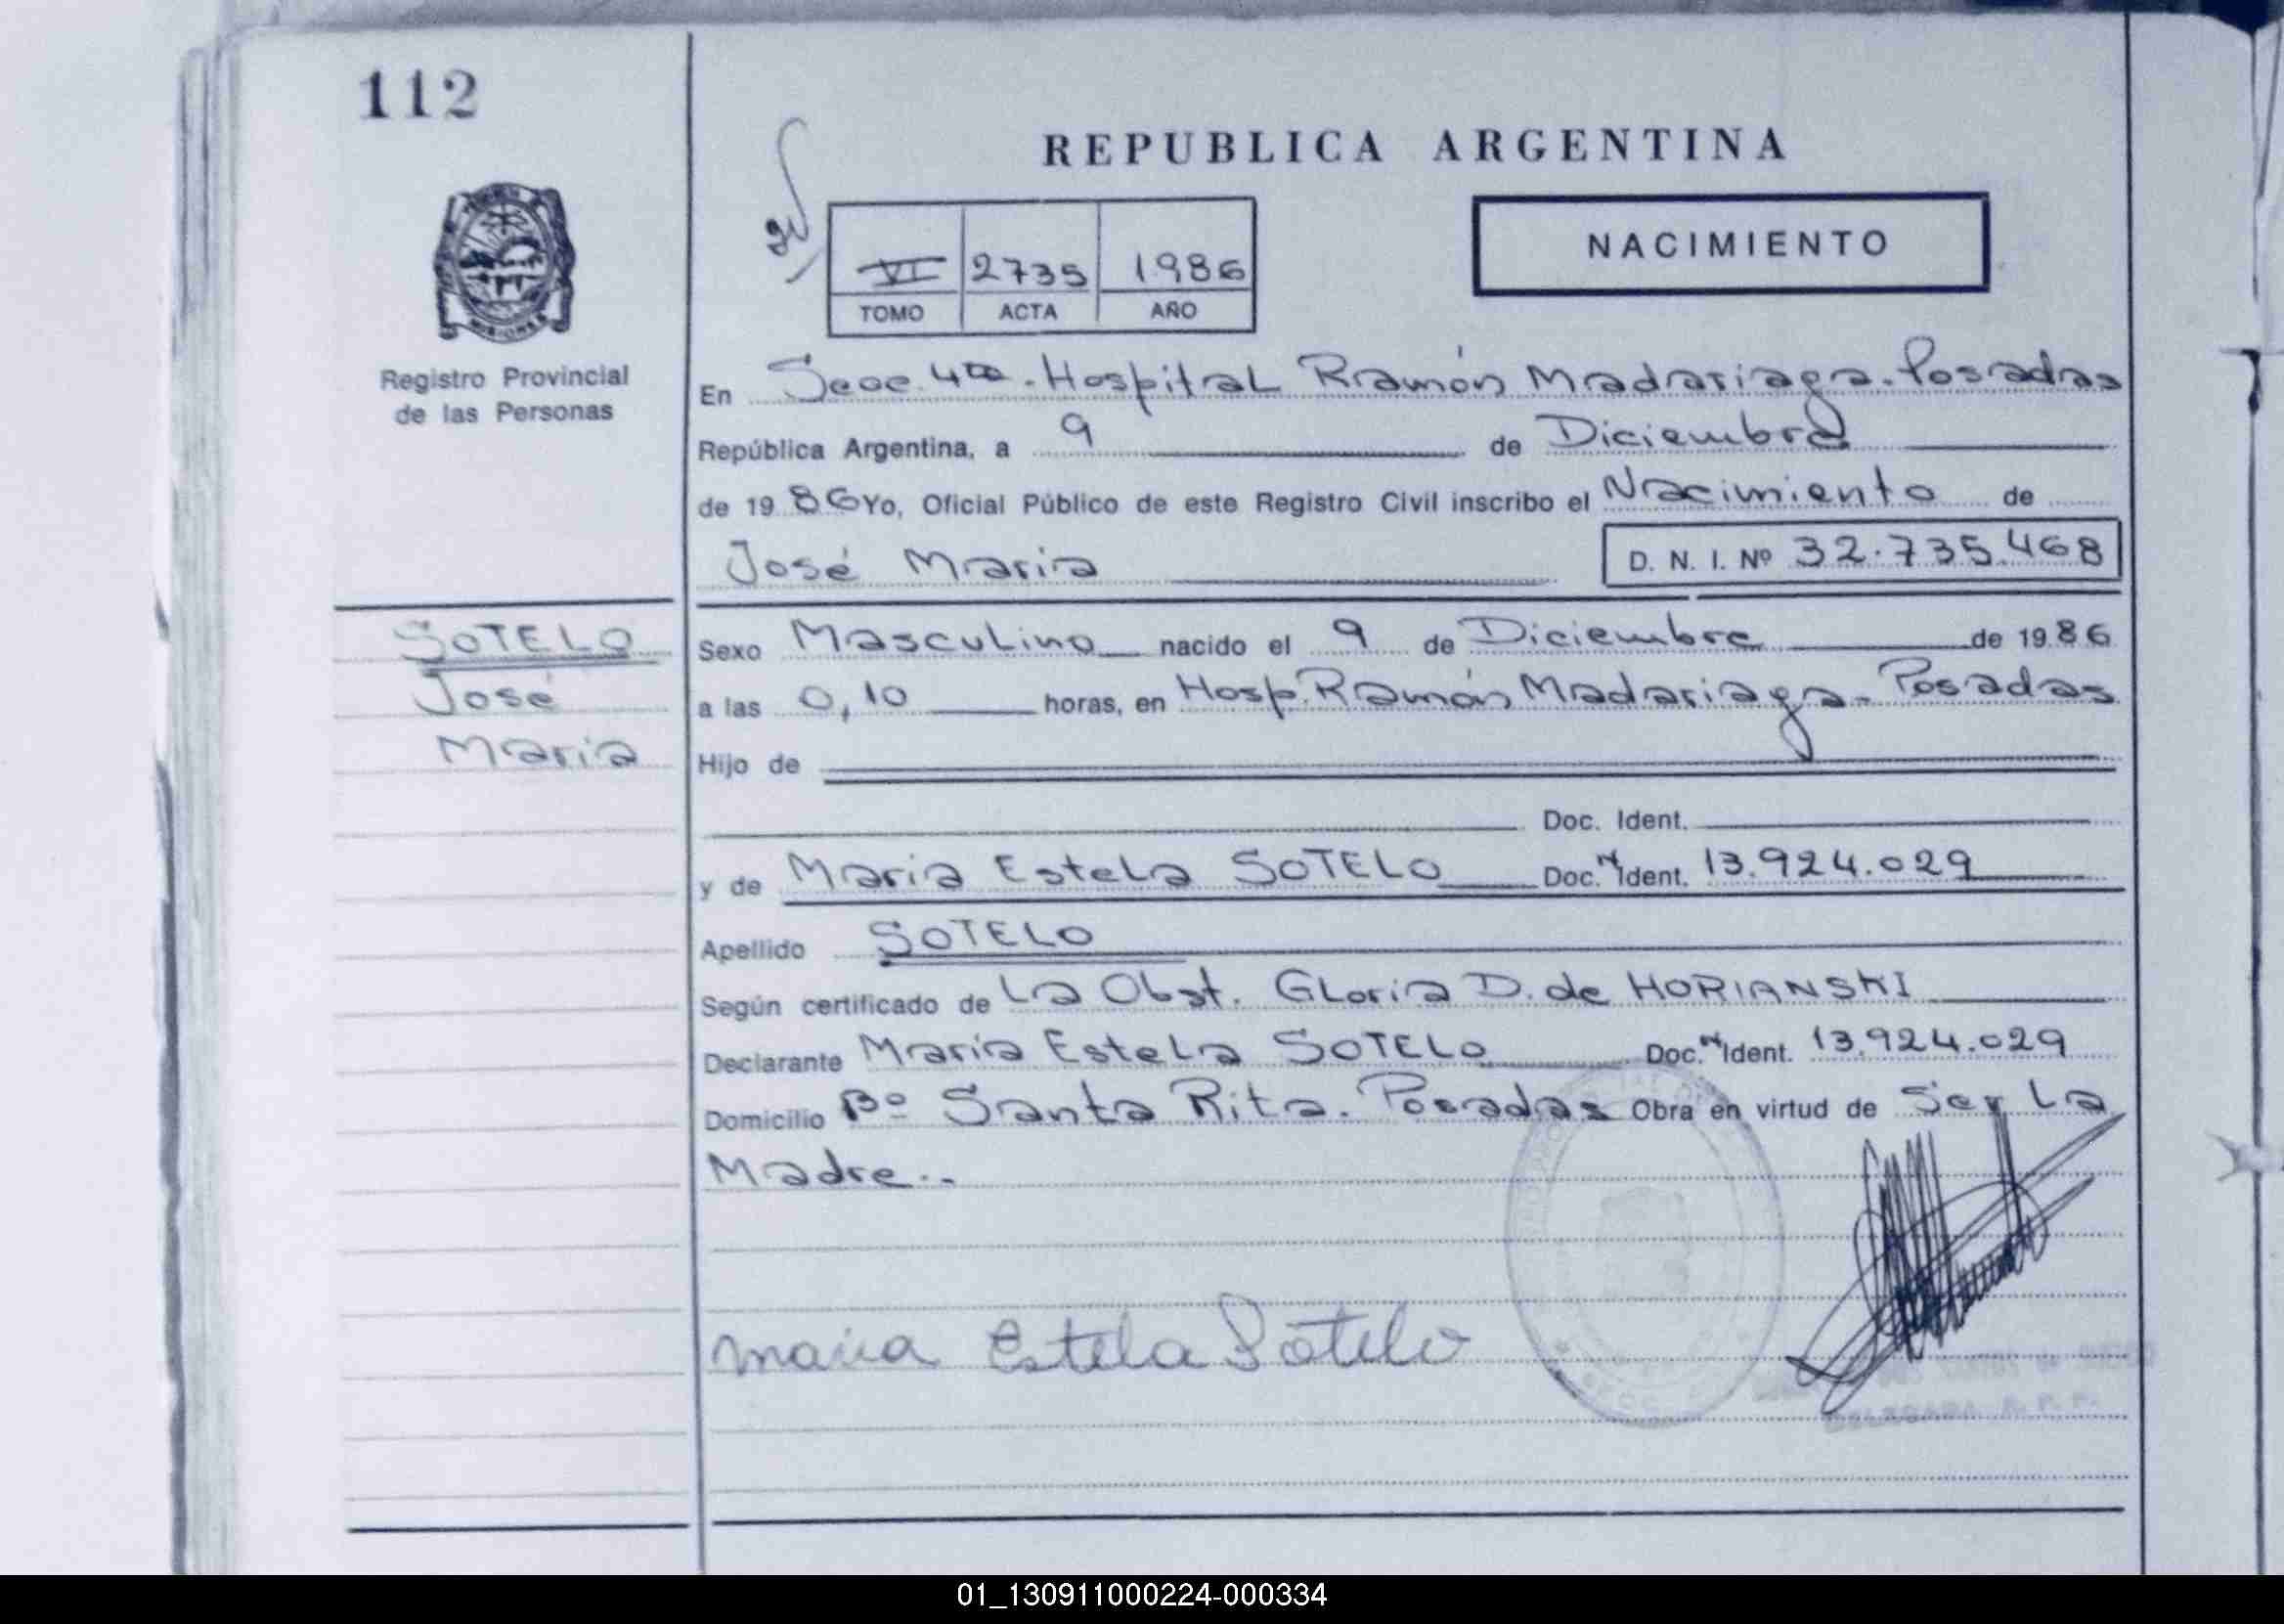 112
REPUBLICA ARGENTINA
NACIMIENTO
VI 2735 1986
TOMO ACTA AÑO
MISIONES
Registro Provincial
de las Personas
En Secc. 4ta. Hospital Ramón Madariaga. Posadas
República Argentina, a 9 de Diciembre
de 1986 Yo, Oficial Público de este Registro Civil inscribo el Nacimiento de
José Maria
D. N. I. Nº 32.735.468
SOTELO
José
Maria
Sexo Masculino nacido el 9 de Diciembre de 1986
a las 0,10 horas, en Hosp. Ramón Madariaga. Posadas
Hijo de
Doc. Ident.
y de Maria Estela SOTELO Doc. N Ident. 13.924.029
Apellido SOTELO
Según certificado de La Obst. Gloria D. de HORIANSKI
Declarante María Estela SOTELO Doc. N Ident. 13.924.029
Domicilio Bº Santa Rita. Posadas Obra en virtud de Ser La
Madre..
maria Estela Sotelo
DELEGADA R. P. P.
01_130911000224-000334